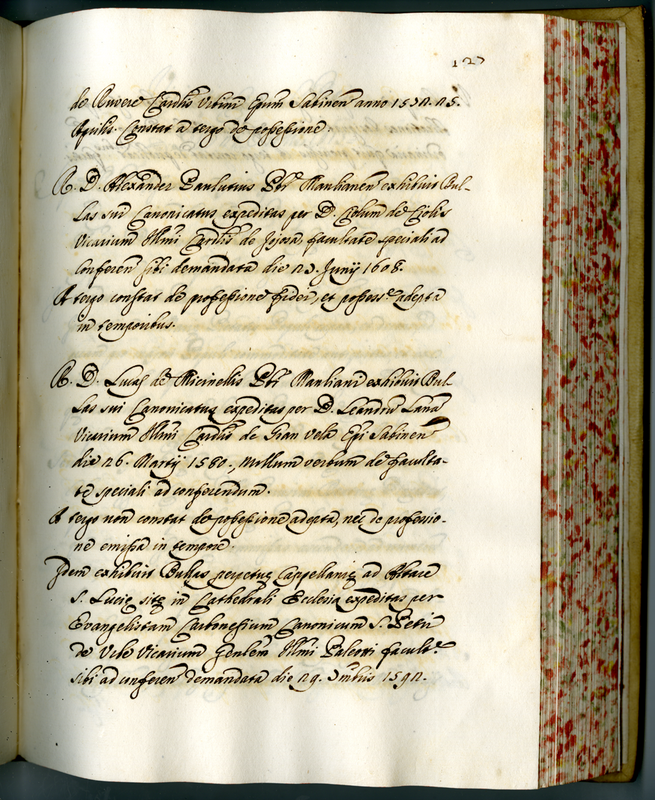 127
de Ruvere Cardis Urbini Epum Sabinen anno 1572. 25.
Aprilis. Constat a tergo de possessione.
R. D. Alexander Paulutius Pbr Manlianen exhibuit Bul-
las sui Canonicatus expeditas per D. Ciolum de Ciolis
Vicarium Illmi Cardlis de Joiosa, facultate speciali ad
conferen sibi demandata die 23. Junij 1608.
A tergo constat de professione fidei, et possess.e adepta
in temporibus.
R. D. Lucas de Micinellis Pbr Manliani exhibuit Bul-
las sui Canonicatus expeditas per D. Leandrum Lana
Vicarium Illmi Cardlis de Gran vela Epi Sabinen
die 26. Martij 1580., nullum verbum de faculta-
te speciali ad conferendum.
A tergo non constat de possessione adepta, nec de professio-
ne emissa in tempore.
Idem exhibuit Bullas perpetuę Cappellanię ad Altare
S. Lucię sitę in Cathedrali Ecclesia expeditas per
Evangelistam Carbonesium Canonicum S. Petri
de Urbe Vicarium Genlem Illmi Paleotti facult.e
sibi ad conferen demandata die 29. 1592.